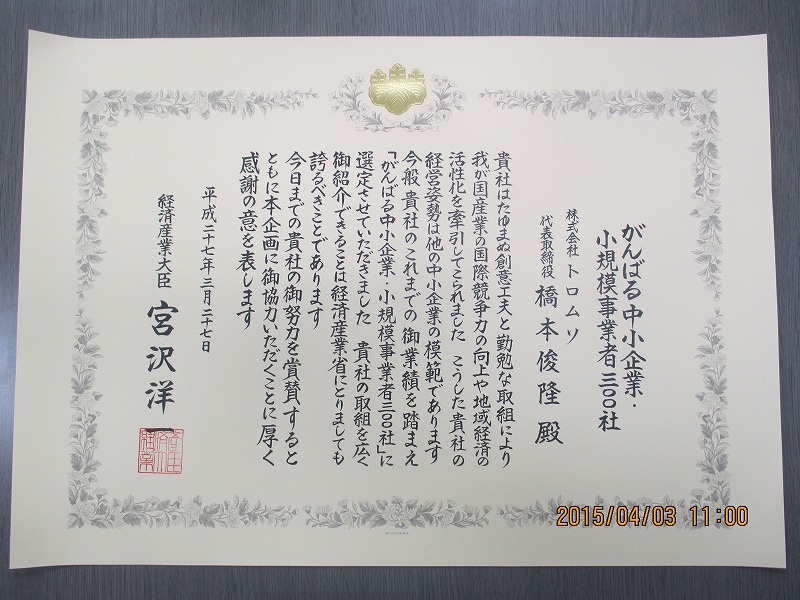 がんばる中小企業・
小規模事業者三〇〇社
株式会社 トロムソ
代表取締役 橋本俊隆 殿
貴社はたゆまぬ創意工夫と勤勉な取組により
我が国産業の国際競争力の向上や地域経済の
活性化を牽引してこられました こうした貴社の
経営姿勢は他の中小企業の模範であります
今般 貴社のこれまでの御業績を踏まえ
「がんばる中小企業・小規模事業者三〇〇社」に
選定させていただきました 貴社の取組を広く
御紹介できることは経済産業省にとりましても
誇るべきことであります
今日までの貴社の御努力を賞賛すると
ともに本企画に御協力いただくことに厚く
感謝の意を表します
平成二十七年三月二十七日
経済産業大臣 宮沢洋一
2015/04/03 11:00